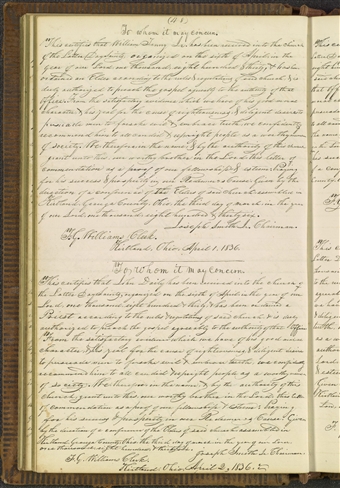 (43)
To whom it may concern
This certifies that William Tenny Jr has been received into the church
of the Latter Day Saints, organized on the sixth of April in the
year of our Lord, one thousand, eight hundred & thirty, & has been
ordained an Elder according to the rules & regulations of said church & is
duly authorized to preach the gospel agreeably to the authority of that
office. From the satisfactory evidence which we have of his good moral
character, & his zeal for the cause of righteousness, & diligent desire to
persuade men to forsake evil & embrace truth, we confidently
recommend him to all candid & upright people as a worthy member
of society. We therefore in the name, & by the authority of this church
grant unto this our worthy brother in the Lord this letter of
commendation as a proof of our fellowship & esteem: Praying
for his success & prosperity in our Redeemer's cause. Given by the
direction of a conference of the Elders of said church assembled in
Kirtland, Geauga County, Ohio, the third day of March, in the year of
our Lord, one thousand, eight hundred & thirty six.
Joseph Smith Jr. Chairman.
F. G. Williams Clerk.
Kirtland, Ohio April 1, 1836.
To Whom it may concern
This certifies that has been received into the church of
the Latter Day Saints, organized on the sixth of April in the year of our
Lord, one thousand, eight hundred & thirty, & has been ordained a
Priest according to the rules & regulations of said church, & is duly
authorized to preach the gospel agreeably to the authority of that office
From the satisfactory evidence which we have of his good moral
character, & his zeal for the cause of righteousness, & diligent desire
to persuade men to forsake evil & embrace truth, we confidently
recommend him to all candid & upright people as a worthy member
of society. We therefore in the name, & by the authority of this
church grant unto this our worthy brother in the Lord, this letter
of commendation as a proof of our fellowship & esteem: Praying
for his success & prosperity in our Redeemer's cause. Given
by the direction of a conference of the Elders of said church assembled in
Kirtland, Geauga County, Ohio, the third day of March in the year of our Lord
one thousand, eight hundred & thirty six.
Joseph Smith Jr. Chairman.
F. G. Williams Clerk.
Kirtland, Ohio, April 2, 1836.